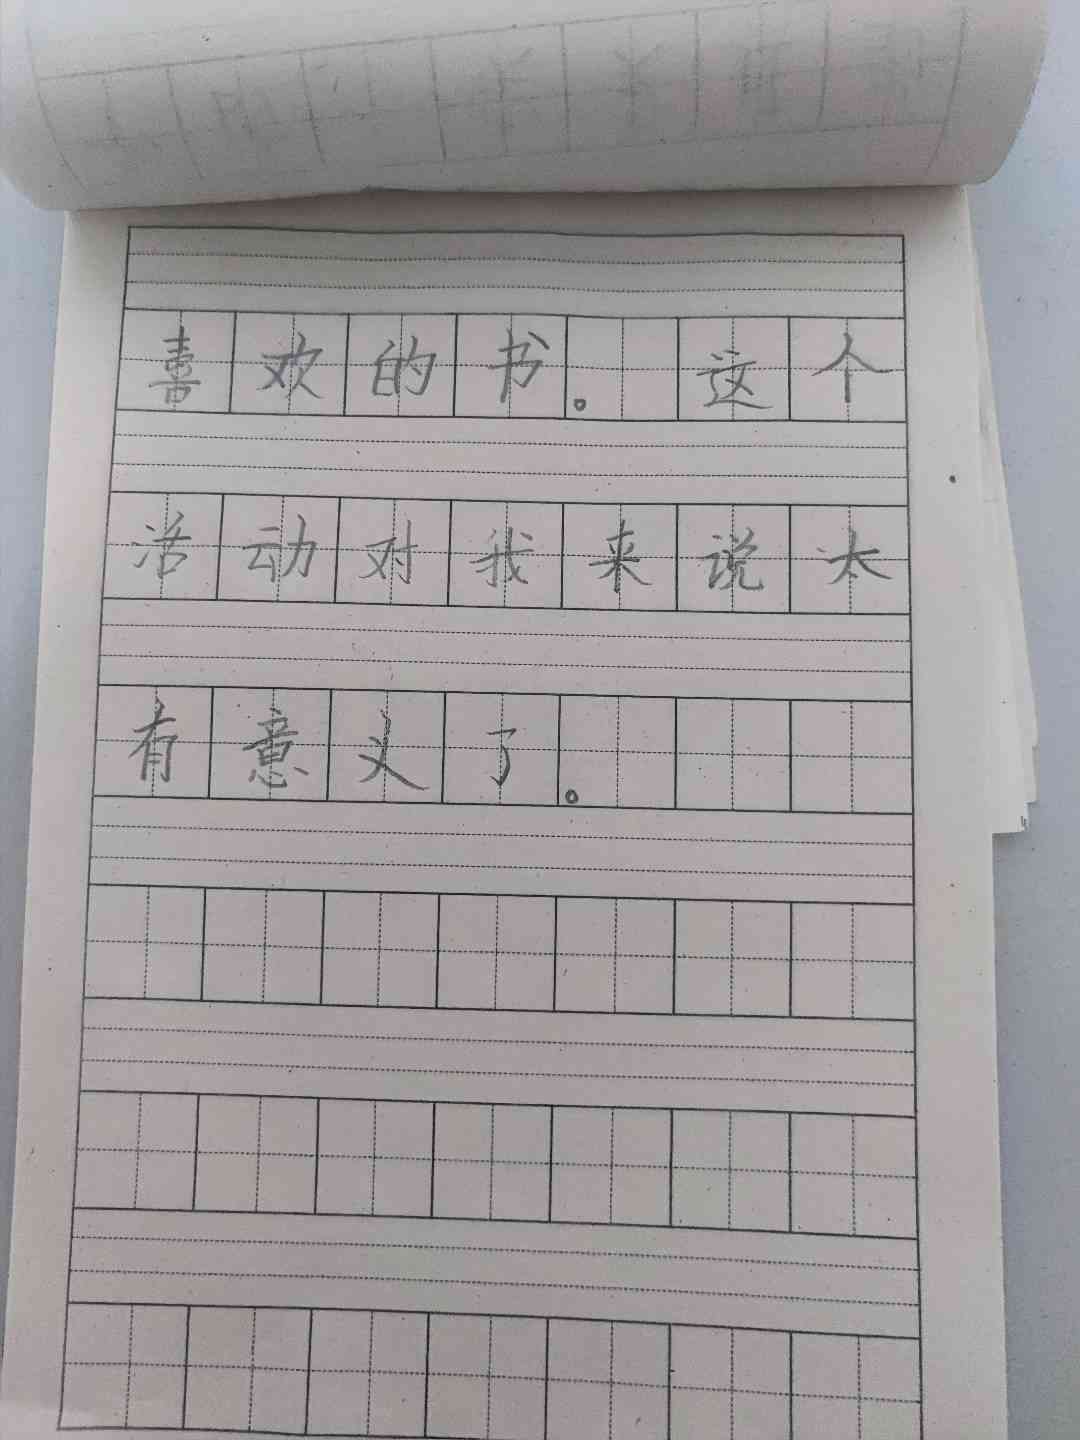 喜欢的书。这个
活动对我来说太
有意义了。